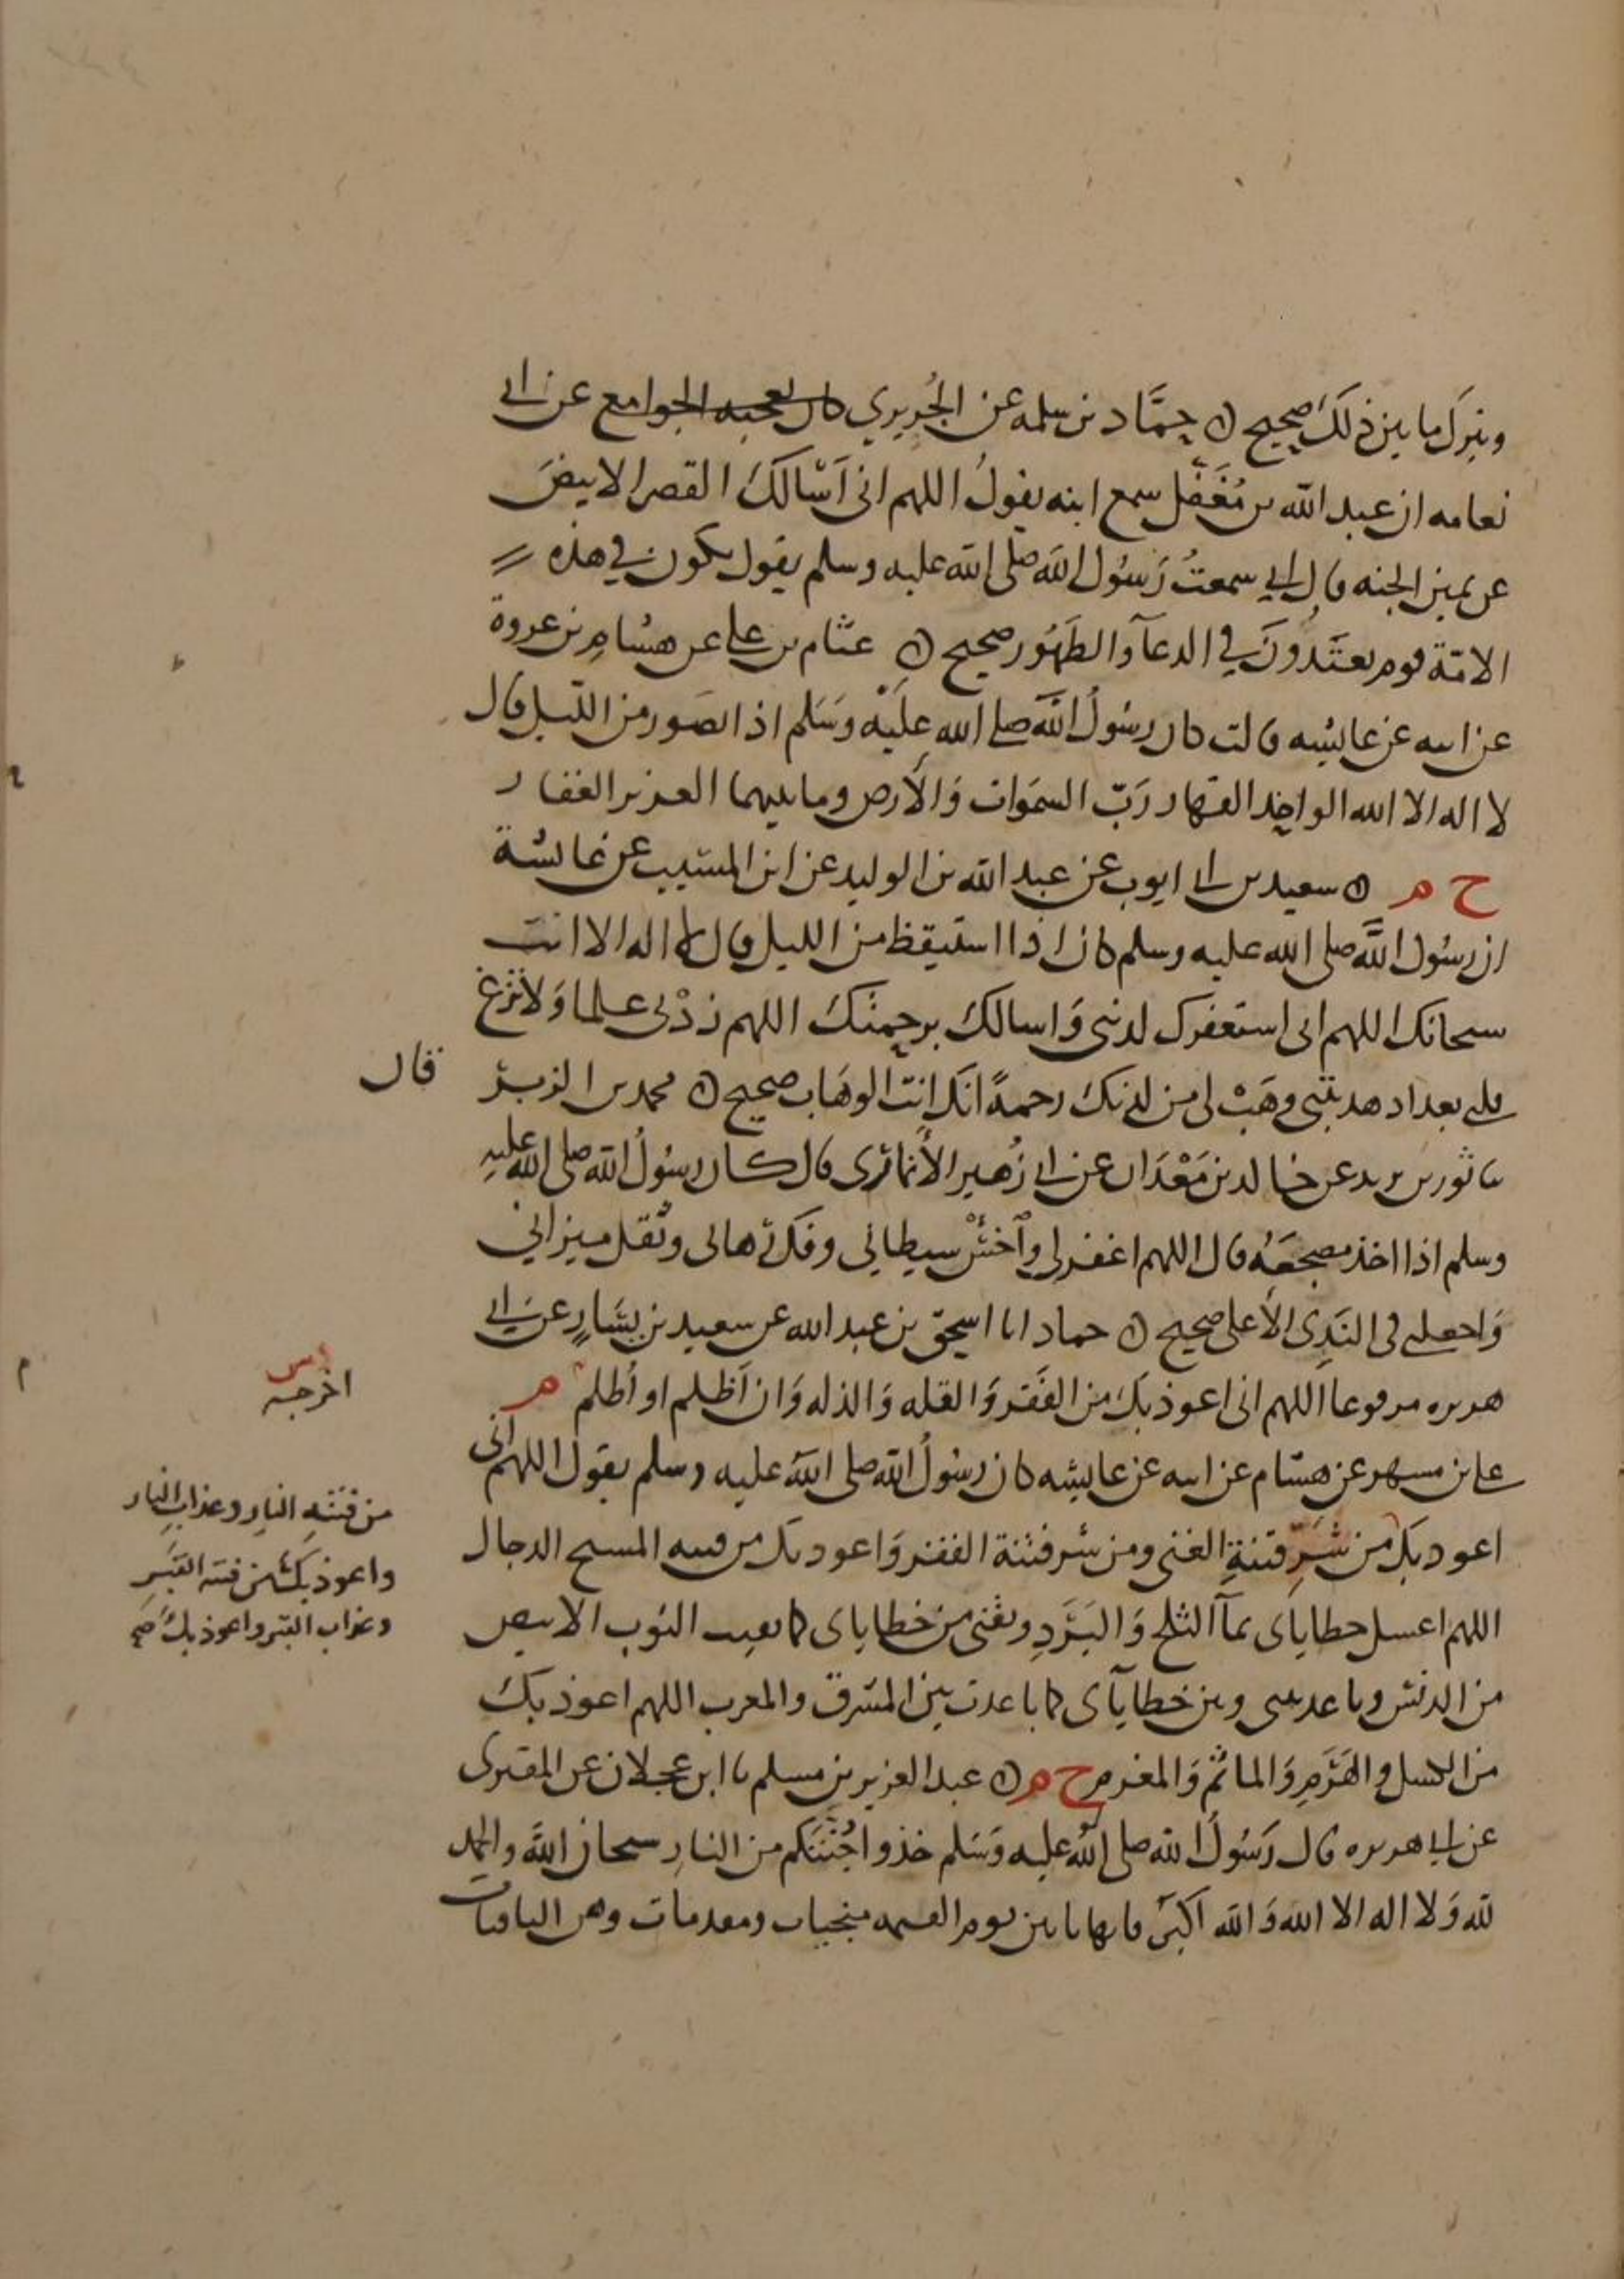 ويترك ما بين ذلك صحيح ه حماد بن سلمه عن الجريري كان يعجبه الجوامع عن ابي
نعامه ان عبد الله بن مغفل سمع ابنه يقول اللهم اني اسالك القصر الابيض
عن يمين الجنه قال اي سمعت رسول الله صلى الله عليه وسلم يقول يكون في هذه
الامة قوم يعتدون في الدعآ والطهور صحيح ه عثام بن علي عن هشام بن عروة
عن ابيه عن عايشه قالت كان رسول الله صلى الله عليه وسلم اذا تضور من الليل قال
لا اله الا الله الواحد القهار رب السموات والارض وما بينهما العزيز الغفار
خ م ه سعيد بن ابي ايوب عن عبد الله بن الوليد عن ابن المسيب عن عائشة
ان رسول الله صلى الله عليه وسلم كان اذا استيقظ من الليل قال لا اله الا انت
سبحانك اللهم اني استغفرك لذنبي واسالك برحمتك اللهم زدني علما ولا تزغ
قلبي بعد اذ هديتني وهب لي من لدنك رحمة انك انت الوهاب صحيح ه محمد بن الزبير
قال
ثنا ثور بن يزيد عن خالد بن معدان عن ابي زهير الأنماري قال كان رسول الله صلى الله عليه
وسلم اذا اخذ مضجعه قال اللهم اغفر لي واخسئ شيطاني وفك رهاني وثقل ميزاني
واجعلني في الندي الأعلى صحيح ه حماد انا اسحق بن عبد الله عن سعيد بن يسار عن ابي
هريره مرفوعا اللهم اني اعوذ بك من الفقر والقله والذله وان اظلم او أظلم م
اخرجه
علي بن مسهر عن هشام عن ابيه عن عايشه كان رسول الله صلى الله عليه وسلم يقول اللهم اني
اعوذ بك من شر فتنة الغنى ومن شر فتنة الفقر واعوذ بك من فتنه المسيح الدجال
من فتنه النار وعذاب النار
واعوذ بك من فتنه القبر
وعذاب القبر واعوذ بك صح
اللهم اغسل خطاياى بمآ الثلج والبرد ونقني من خطاياى كما نقيت الثوب الابيض
من الدنس وباعد بيني وبين خطايآى كما باعدت بين المشرق والمغرب اللهم اعوذ بك
من الكسل والهرم والماثم والمغرم خ م ه عبد العزيز بن مسلم ثنا ابن عجلان عن المقبرى
عن ابي هريره قال رسول الله صلى الله عليه وسلم خذوا جنتكم من النار سبحان الله والحمد
لله ولا اله الا الله والله اكبر فانها ياتين يوم القيمه منجيات ومقدمات وهن الباقيات